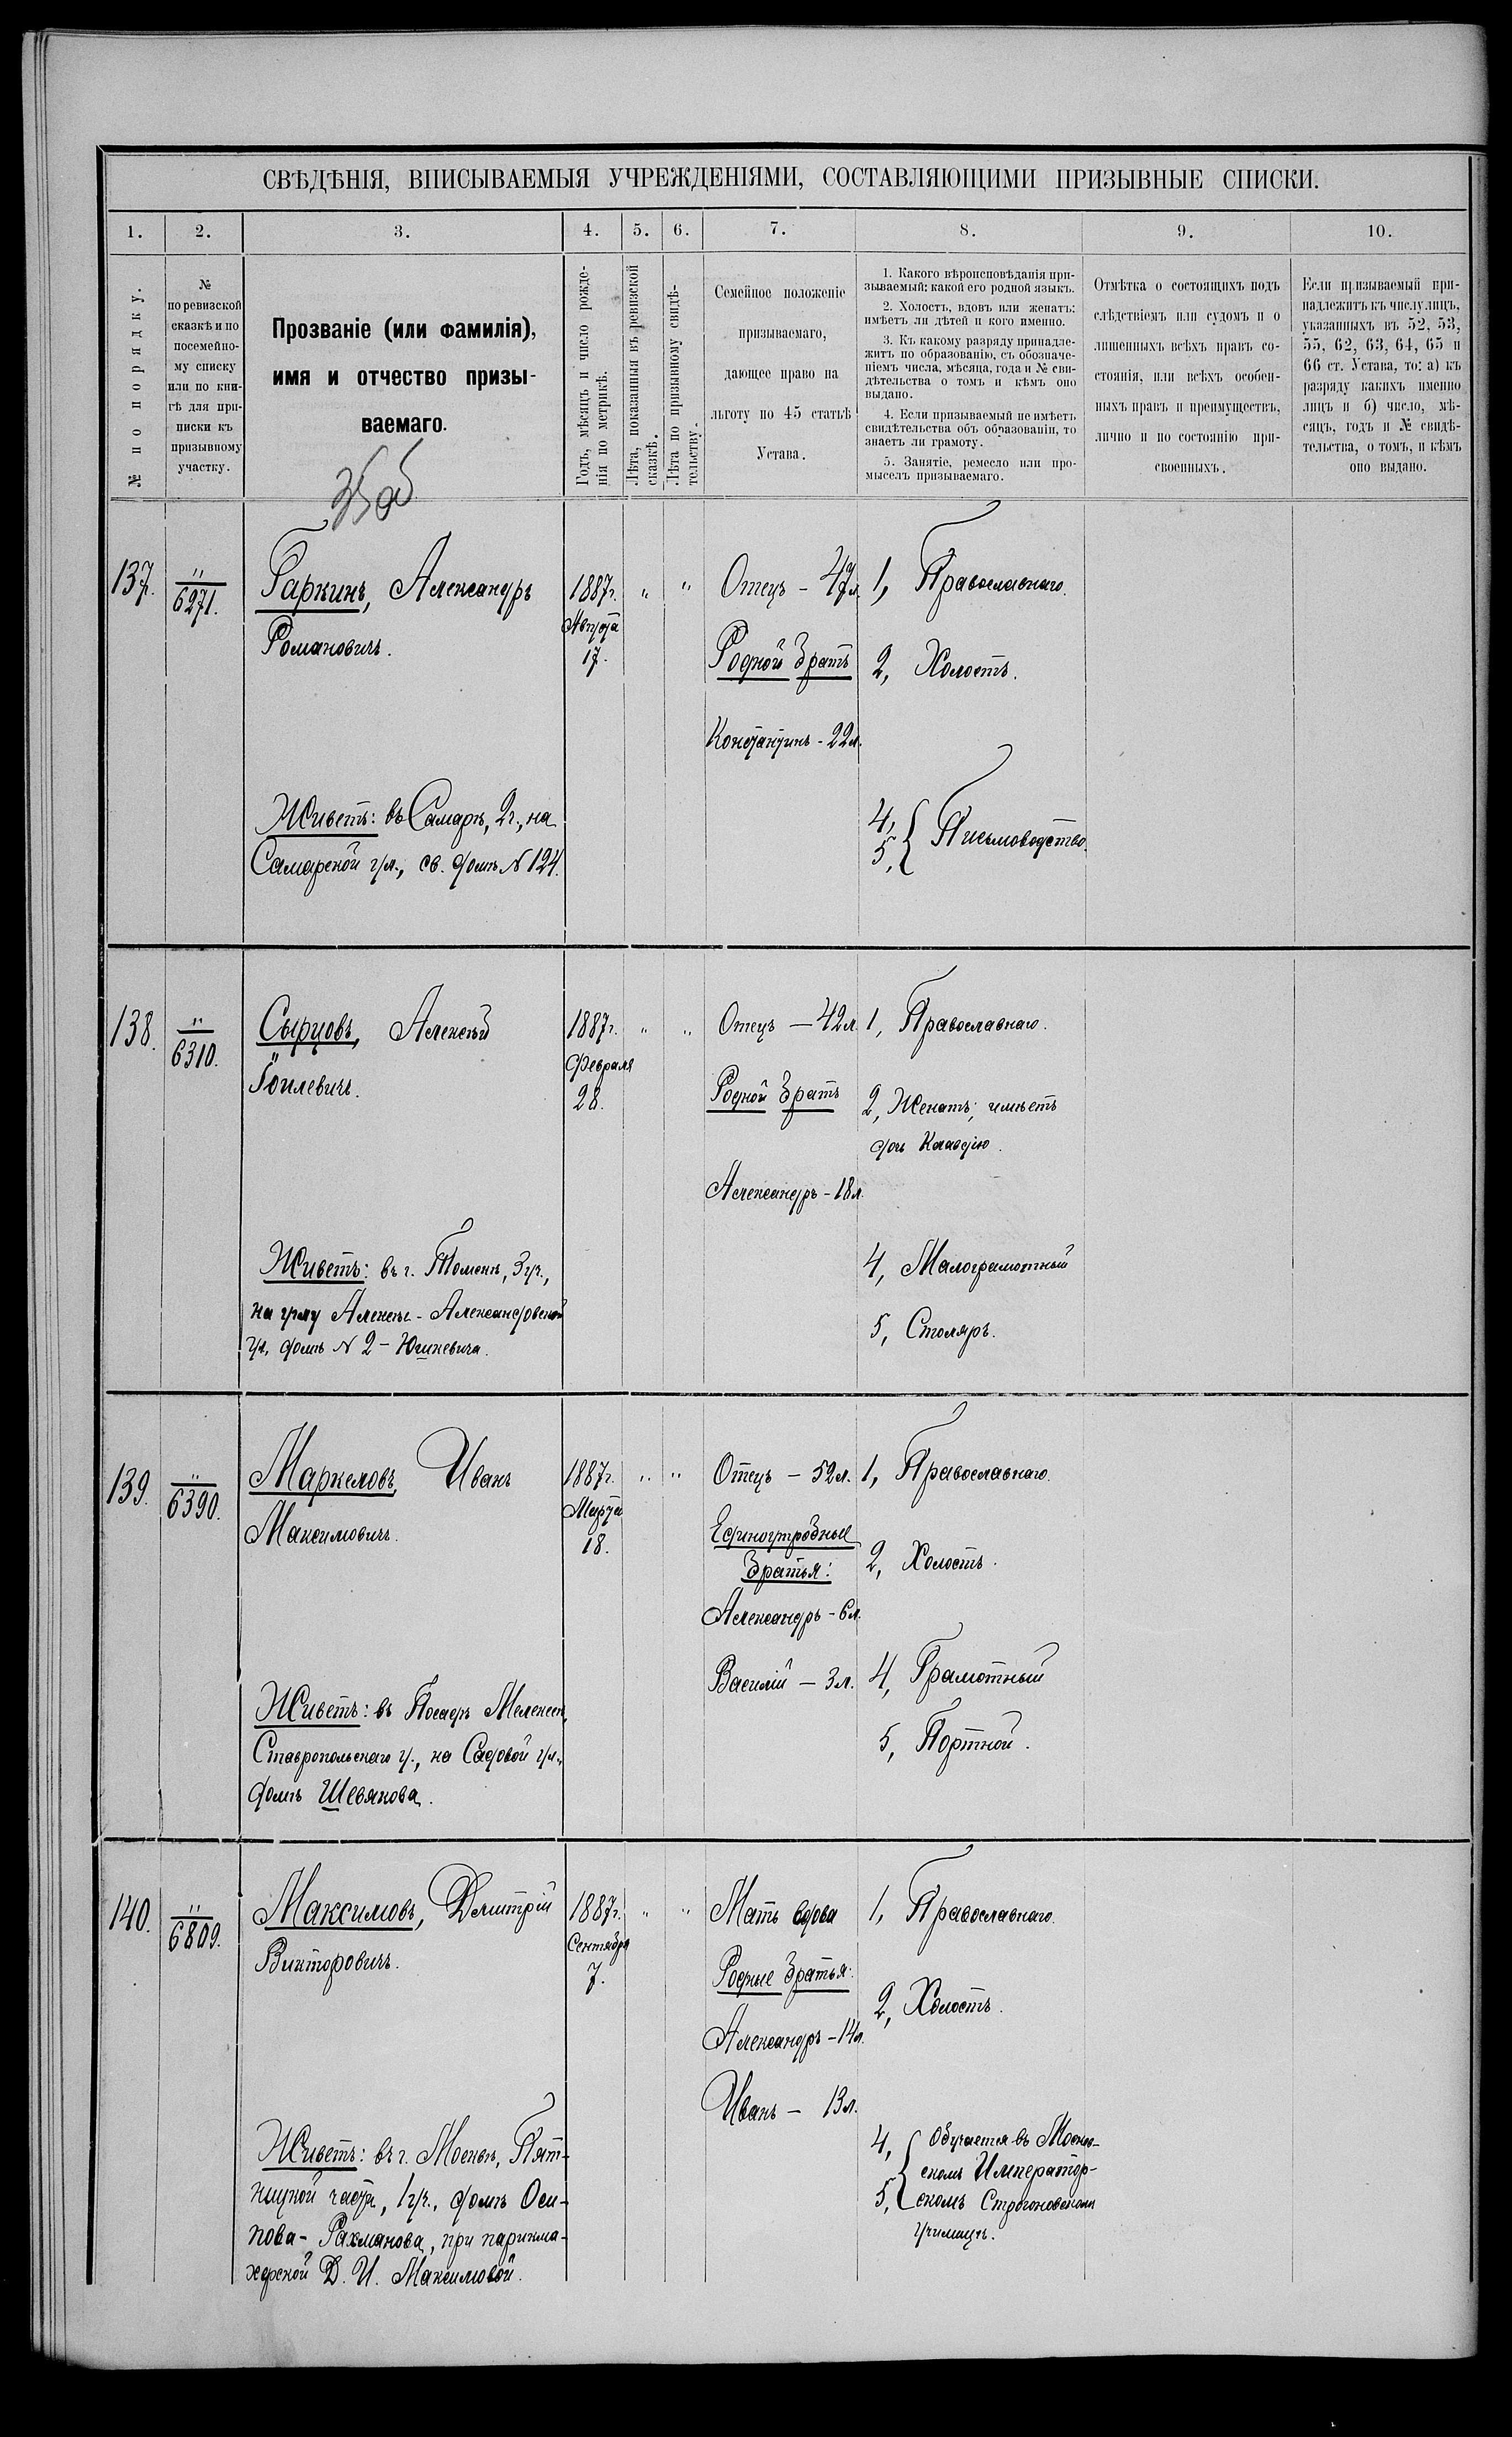 СВѢДѢНІЯ, ВПИСЫВАЕМЫЯ УЧРЕЖДЕНІЯМИ, СОСТАВЛЯЮЩИМИ ПРИЗЫВНЫЕ СПИСКИ.
1. 2. 3. 4. 5. 6. 7. 8. 9. 10.
№ по порядку.
№
по ревизской
сказкѣ и по
посемейно-
му списку
или по кни-
гѣ для при-
писки къ
призывному
участку.
Прозваніе (или фамилія),
имя и отчество призы-
ваемаго.
Годъ, мѣсяцъ и число рожде-
нія по метрикѣ.
Лѣта, показанныя въ ревизской
сказкѣ.
Лѣта по призывному свидѣ-
тельству.
Семейное положеніе
призываемаго,
дающее право на
льготу по 45 статьѣ
Устава.
1. Какого вѣроисповѣданія при-
зываемый; какой его родной языкъ.
2. Холостъ, вдовъ или женатъ;
имѣетъ ли дѣтей и кого именно.
3. Къ какому разряду принадле-
житъ по образованію, съ обозначе-
ніемъ числа, мѣсяца, года и № сви-
дѣтельства о томъ и кѣмъ оно
выдано.
4. Если призываемый не имѣетъ
свидѣтельства объ образованіи, то
знаетъ ли грамоту.
5. Занятіе, ремесло или про-
мыселъ призываемаго.
Отмѣтка о состоящихъ подъ
слѣдствіемъ или судомъ и о
лишенныхъ всѣхъ правъ со-
стоянія, или всѣхъ особен-
ныхъ правъ и преимуществъ,
лично и по состоянію при-
своенныхъ.
Если призываемый при-
надлежитъ къ числу лицъ,
указанныхъ въ 52, 53,
55, 62, 63, 64, 65 и
66 ст. Устава, то: а) къ
разряду какихъ именно
лицъ и б) число, мѣ-
сяцъ, годъ и № свидѣ-
тельства, о томъ, и кѣмъ
оно выдано.
137.
" 6271.
Гаркинъ, Александръ
Романовичъ.
Живетъ: въ Самарѣ, 2 ч., на
Самарской ул., св. домъ № 124.
1887 г.
Августа
17.
" "
Отецъ - 49 л.
Родной братъ
Константинъ - 22 л.
1, Православнаго.
2, Холостъ.
4,
5, Письмоводство.
138.
" 6310.
Сырцовъ, Алексѣй
Іоилевичъ.
Живетъ: въ г. Тюмени, 3 уч.,
на углу Алексѣе-Александровской
ул. домъ № 2 - Юшкевича.
1887 г.
Февраля
28.
" "
Отецъ — 42 л.
Родной братъ
Александръ - 18 л.
1, Православнаго.
2, Женатъ; имѣетъ
дочь Клавдію.
4, Малограмотный
5, Столяръ.
139.
" 6390.
Маркеловъ, Иванъ
Максимовичъ.
Живетъ: въ Посадѣ Мелекесѣ,
Ставропольскаго у., на Садовой ул.,
домъ Шевякова.
1887 г.
Марта
18.
" "
Отецъ - 52 л.
Единоутробные
братья:
Александръ - 6 л.
Василій — 3 л.
1, Православнаго.
2, Холостъ.
4, Грамотный
5, Портной.
140.
" 6809.
Максимовъ, Дмитрій
Викторовичъ.
Живетъ: въ г. Москвѣ, Пят-
ницкой части, 1 уч., домъ Оси-
пова-Рахманова, при парикма-
херской Д. И. Максимовой.
1887 г.
Сентября
7.
" "
Мать вдова
Родные братья:
Александръ - 14 л.
Иванъ — 13 л.
1, Православнаго.
2, Холостъ.
4,
5,
Обучается въ Москов-
скомъ Император-
скомъ Строгоновскомъ
училищѣ.